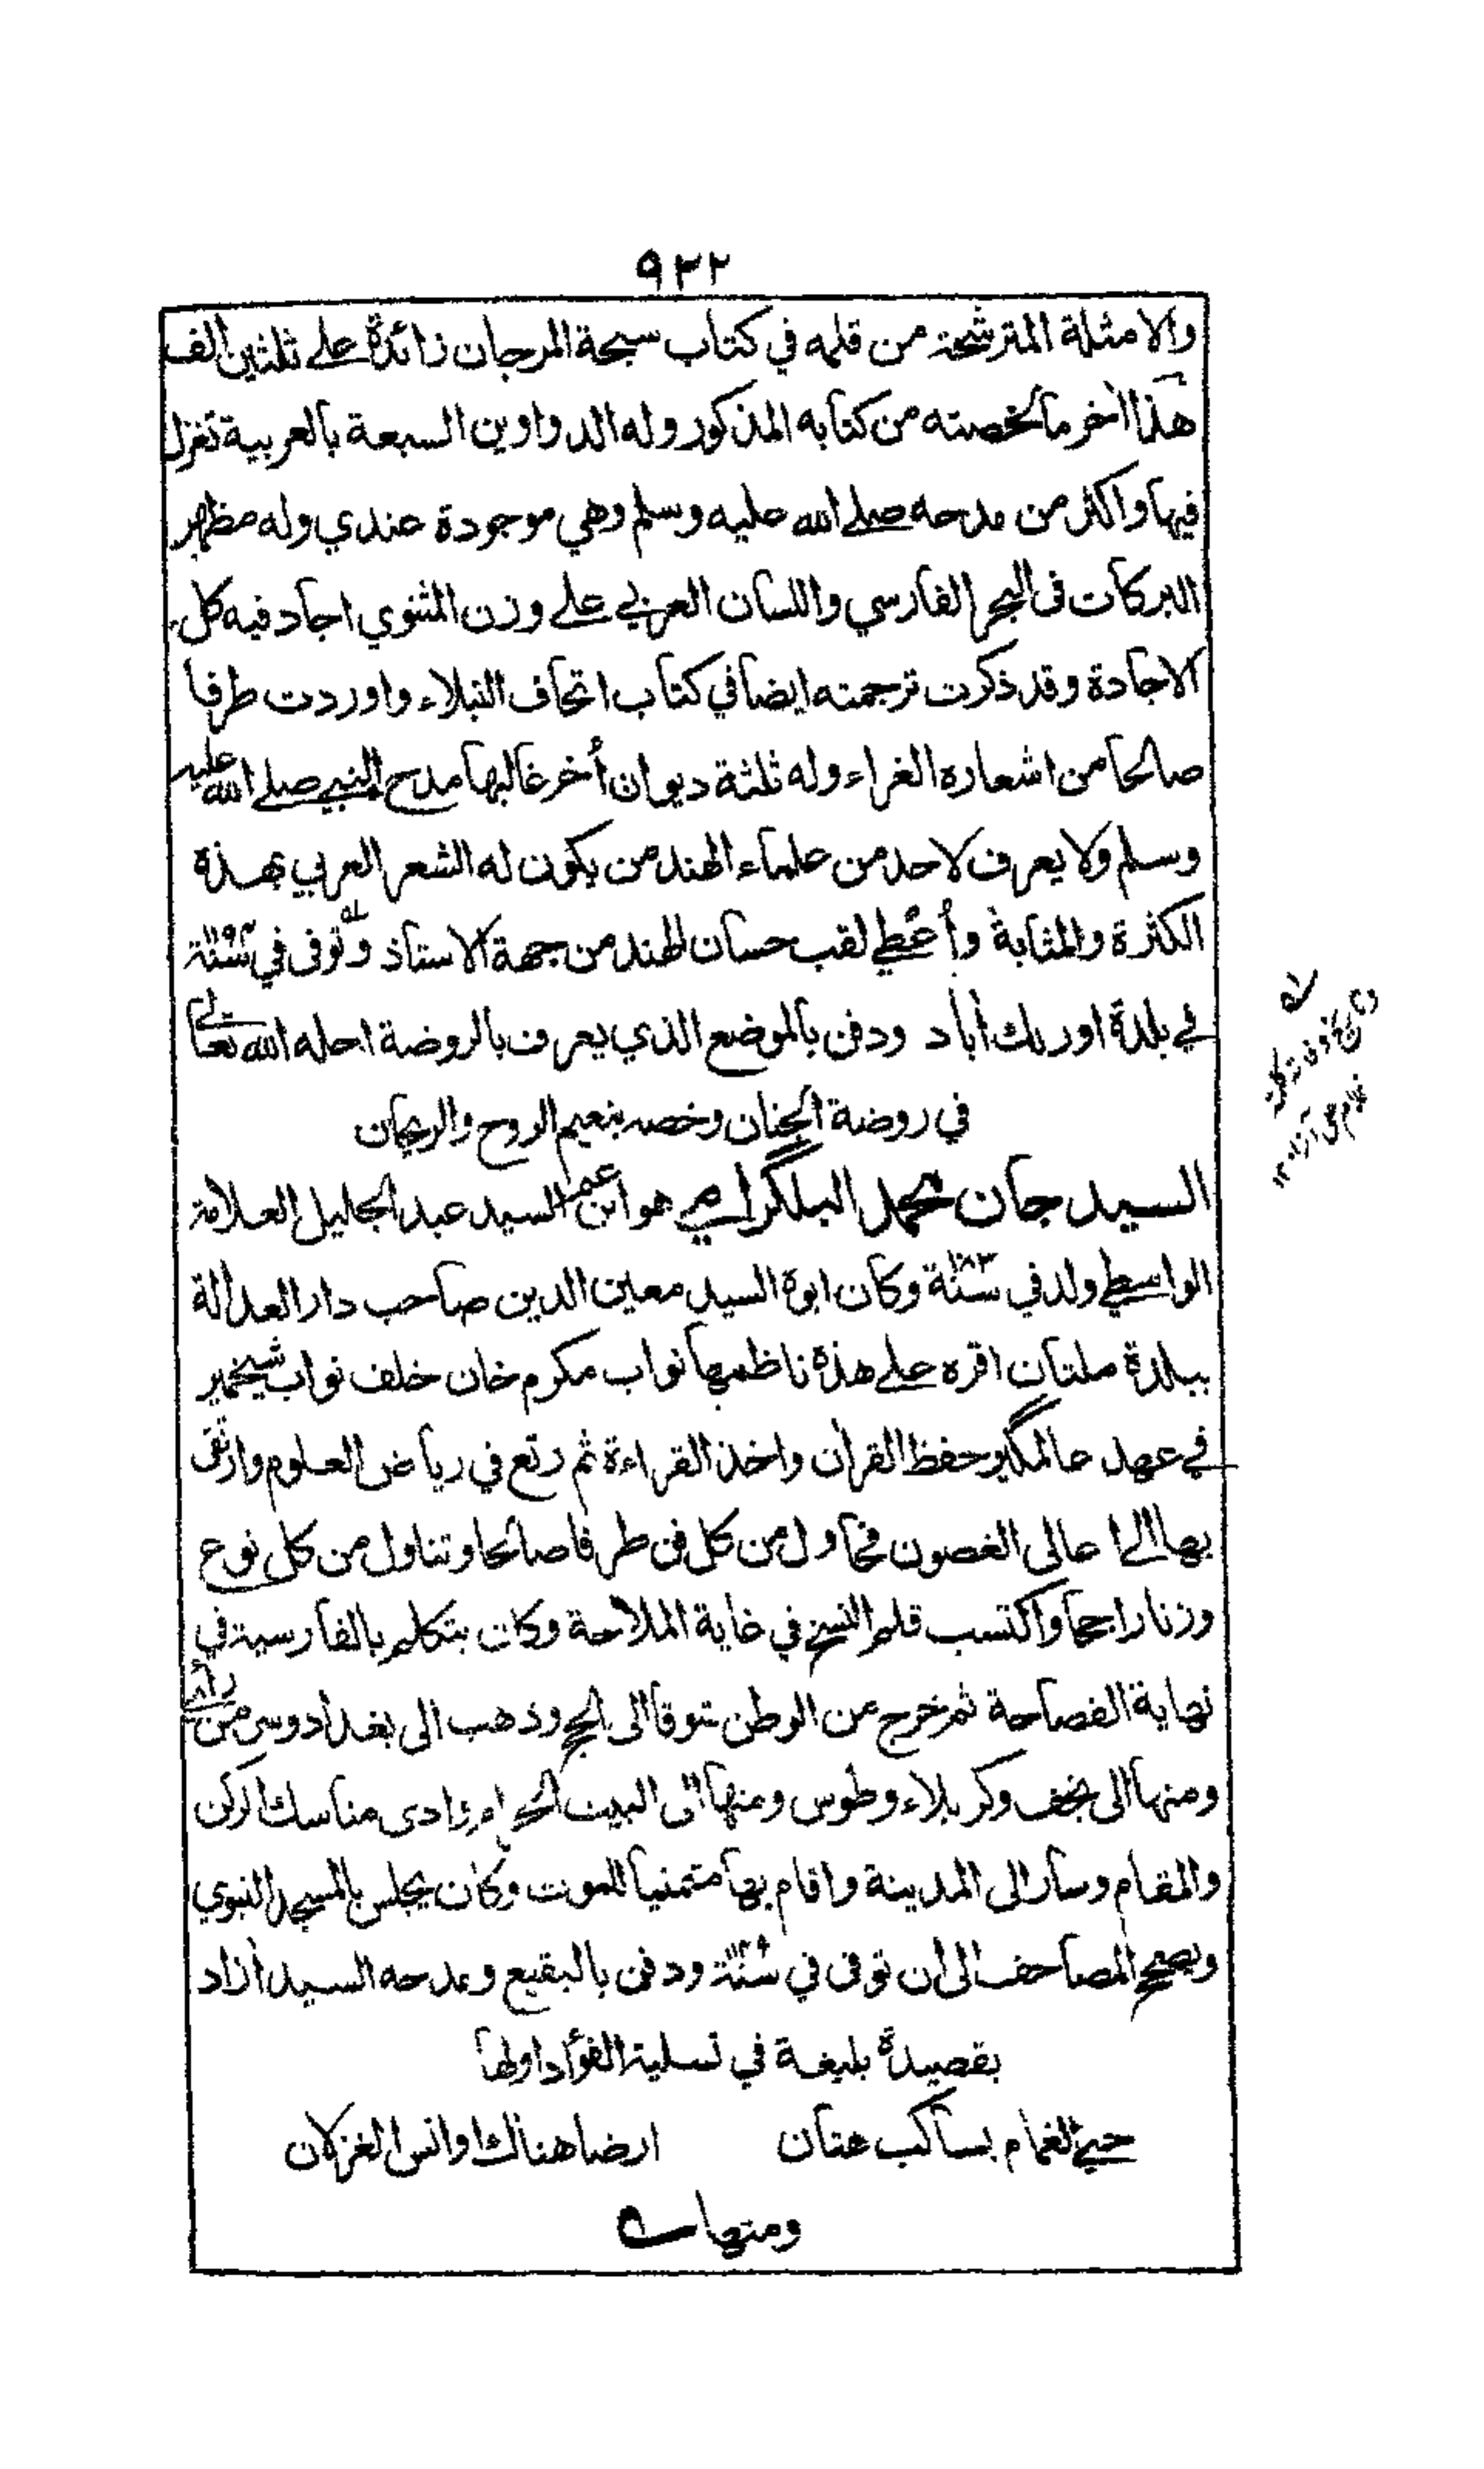 ٩٢٢
والامثلة المترشحة من قلمه في كتاب سبحة المرجان زائدة على ثلثين الف
هذا اخر ما لخصته من كتابه المذكور وله الدواوين السبعة بالعربية تغزل
فيها واكثر من مدحه صلى الله عليه وسلم وهي موجودة عندي وله مظهر
البركات في البحر الفارسي واللسان العربي على وزن المثنوي اجاد فيه كل
الاجادة وقد ذكرت ترجمته ايضا في كتاب اتحاف النبلاء واوردت طرفا
صالحا من اشعاره الغراء وله ثلثة ديوان أخر غالبها مدح النبي صلى الله عليه
وسلم ولا يعرف لاحد من علماء الهند من يكون له الشعر العربي بهذه
الكثرة والمثابة وأعطي لقب حسان الهند من جهة الاستاذ وتوفى في سنة
في بلدة اورنك أباد ودفن بالموضع الذي يعرف بالروضة احله الله تعالى
في روضة الجنان وخصه بنعيم الروح والريحان
السيد جان محمد البلكرامي هو ابن عم السيد عبد الجليل العلامة
الواسطي ولد في سنة وكان ابوه السيد معين الدين صاحب دار العدالة
ببلدة ملتان اقره على هذه ناظمها نواب مكرم خان خلف نواب شيخمير
في عهد عالمكير حفظ القرأن واخذ القراءة ثم رتع في رياض العلوم وارتقى
بها الى عالى الغصون فحاول من كل فن طرفا صالحا وتناول من كل نوع
وزنا راجحا واكتسب قلم النسخ في غاية الملاحة وكان يتكلم بالفارسية في
نهاية الفصاحة ثم خرج من الوطن شوقا الى الحج وذهب الى بغداد وسر من رأى
ومنها الى نجف وكربلاء وطوس ومنها الى البيت الحرام وادى مناسك الركن
والمقام وسار الى المدينة واقام بها متمنيا للموت وكان يجلس بالمسجد النبوي
ويصحح المصاحف الى ان توفى في سنة ودفن بالبقيع ومدحه السيد أزاد
بقصيدة بليغة في تسلية الفؤاد اولها
حيى الغمام بساكب هتان ارضا هناك اوانس الغزلان
ومنها